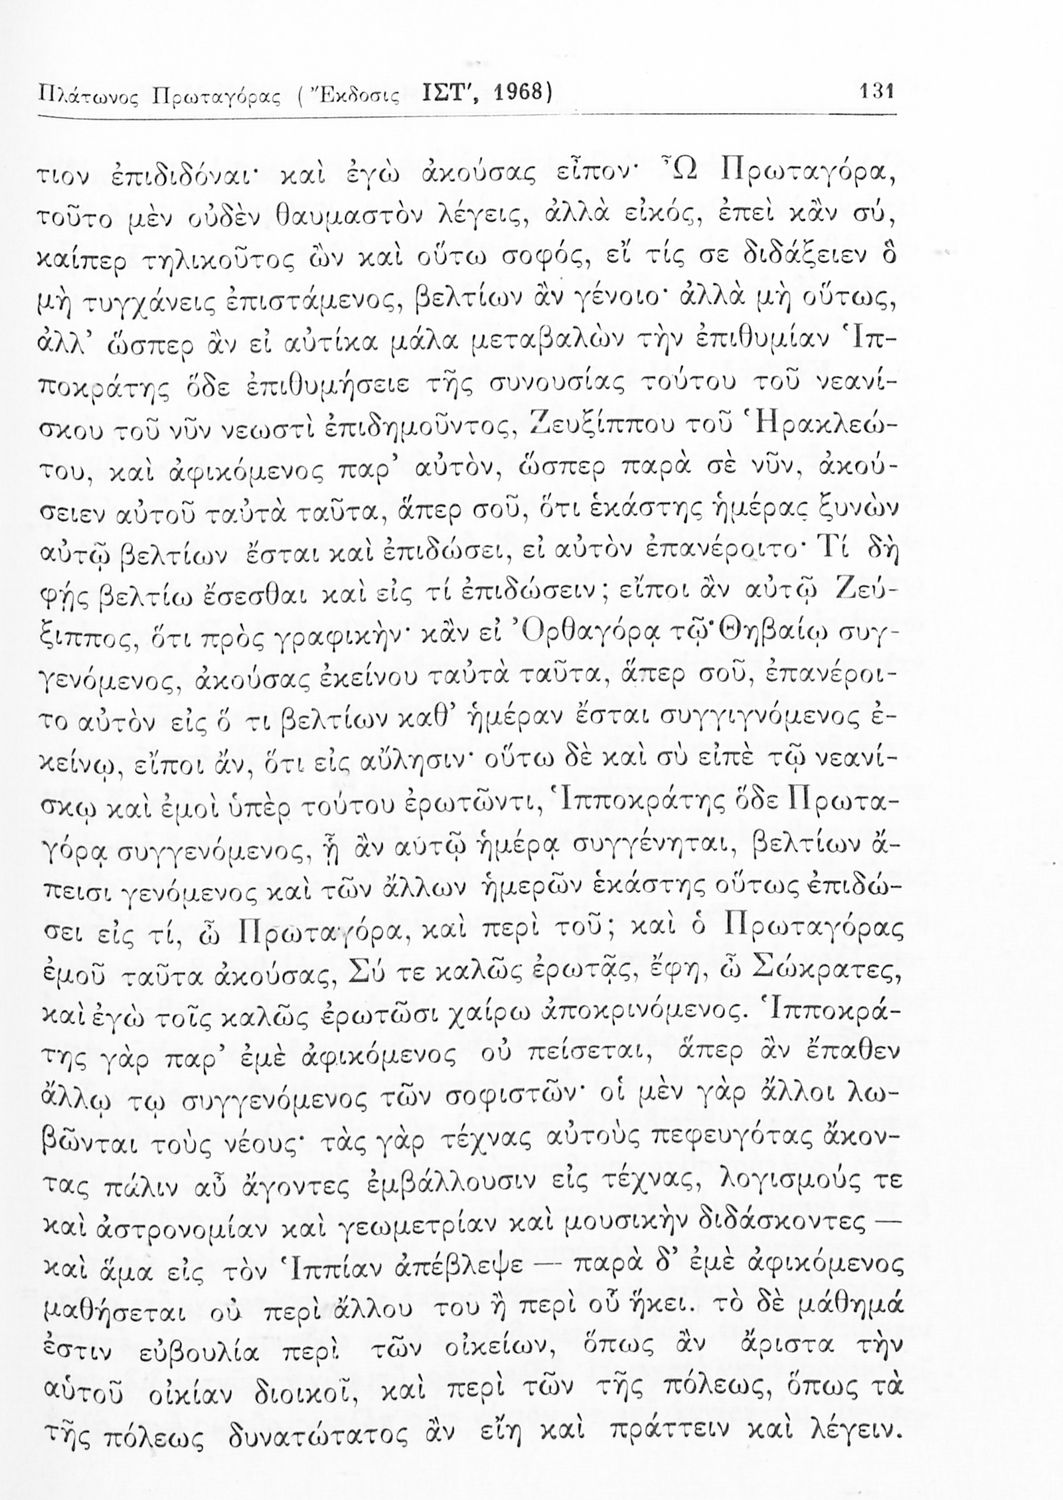 Πλάτωνος Πρωταγόρας ( Ἔκδοσις ΙΣΤ′, 1968) 131
τιον ἐπιδιδόναι· καὶ ἐγὼ ἀκούσας εἶπον· Ὦ Πρωταγόρα,
τοῦτο μὲν οὐδὲν θαυμαστὸν λέγεις, ἀλλὰ εἰκός, ἐπεὶ κἂν σύ,
καίπερ τηλικοῦτος ὢν καὶ οὕτω σοφός, εἴ τίς σε διδάξειεν ὃ
μὴ τυγχάνεις ἐπιστάμενος, βελτίων ἂν γένοιο· ἀλλὰ μὴ οὕτως,
ἀλλ’ ὥσπερ ἂν εἰ αὐτίκα μάλα μεταβαλὼν τὴν ἐπιθυμίαν Ἱπ-
ποκράτης ὅδε ἐπιθυμήσειε τῆς συνουσίας τούτου τοῦ νεανί-
σκου τοῦ νῦν νεωστὶ ἐπιδημοῦντος, Ζευξίππου τοῦ Ἡρακλεώ-
του, καὶ ἀφικόμενος παρ’ αὐτὸν, ὥσπερ παρὰ σὲ νῦν, ἀκού-
σειεν αὐτοῦ ταὐτὰ ταῦτα, ἅπερ σοῦ, ὅτι ἑκάστης ἡμέρας ξυνὼν
αὐτῷ βελτίων ἔσται καὶ ἐπιδώσει, εἰ αὐτὸν ἐπανέροιτο· Τί δὴ
φῄς βελτίω ἔσεσθαι καὶ εἰς τί ἐπιδώσειν; εἴποι ἂν αὐτῷ Ζεύ-
ξιππος, ὅτι πρὸς γραφικὴν· κἂν εἰ Ὀρθαγόρᾳ τῷ Θηβαίῳ συγ-
γενόμενος, ἀκούσας ἐκείνου ταὐτὰ ταῦτα, ἅπερ σοῦ, ἐπανέροι-
το αὐτὸν εἰς ὅ τι βελτίων καθ’ ἡμέραν ἔσται συγγιγνόμενος ἐ-
κείνῳ, εἴποι ἄν, ὅτι εἰς αὔλησιν· οὕτω δὲ καὶ σὺ εἰπὲ τῷ νεανί-
σκῳ καὶ ἐμοὶ ὑπὲρ τούτου ἐρωτῶντι, Ἱπποκράτης ὅδε Πρωτα-
γόρᾳ συγγενόμενος, ᾗ ἂν αὐτῷ ἡμέρᾳ συγγένηται, βελτίων ἄ-
πεισι γενόμενος καὶ τῶν ἄλλων ἡμερῶν ἑκάστης οὕτως ἐπιδώ-
σει εἰς τί, ὦ Πρωταγόρα, καὶ περὶ τοῦ; καὶ ὁ Πρωταγόρας
ἐμοῦ ταῦτα ἀκούσας, Σύ τε καλῶς ἐρωτᾷς, ἔφη, ὦ Σώκρατες,
καὶ ἐγὼ τοῖς καλῶς ἐρωτῶσι χαίρω ἀποκρινόμενος. Ἱπποκρά-
της γὰρ παρ’ ἐμὲ ἀφικόμενος οὐ πείσεται, ἅπερ ἂν ἔπαθεν
ἄλλῳ τῳ συγγενόμενος τῶν σοφιστῶν· οἱ μὲν γὰρ ἄλλοι λω-
βῶνται τοὺς νέους· τὰς γὰρ τέχνας αὐτοὺς πεφευγότας ἄκον-
τας πάλιν αὖ ἄγοντες ἐμβάλλουσιν εἰς τέχνας, λογισμούς τε
καὶ ἀστρονομίαν καὶ γεωμετρίαν καὶ μουσικὴν διδάσκοντες —
καὶ ἅμα εἰς τὸν Ἱππίαν ἀπέβλεψε — παρὰ δ’ ἐμὲ ἀφικόμενος
μαθήσεται οὐ περὶ ἄλλου του ἢ περὶ οὗ ἥκει. τὸ δὲ μάθημά
ἐστιν εὐβουλία περὶ τῶν οἰκείων, ὅπως ἂν ἄριστα τὴν
αὑτοῦ οἰκίαν διοικοῖ, καὶ περὶ τῶν τῆς πόλεως, ὅπως τὰ
τῆς πόλεως δυνατώτατος ἂν εἴη καὶ πράττειν καὶ λέγειν.